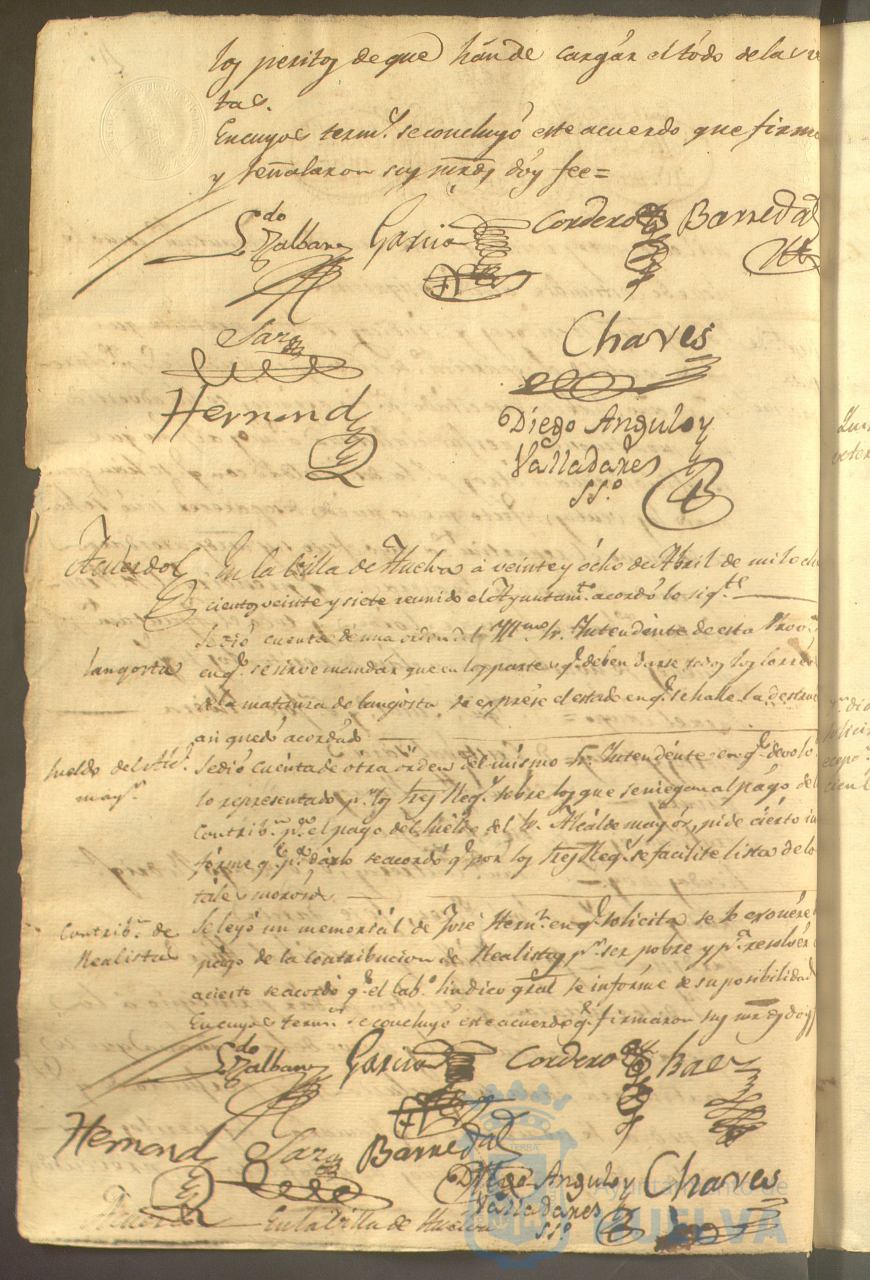 los peritos de que hande cargár el tódo de la
tas.
En cuyos term.s se concluyó este acuerdo que firma
y señalaron sus mrds, dóy fee=
S.do Garcia Cordero Barreda
Saz
Chaves
Hernand
Diego Angulo y
Valladares
SS.º
Acuerdo En la Villa de Huelva á veinte y ócho de Abril de mil ocho
cientos veinte y siete reunido el Ayuntam.to acordó lo sig.te
Se dió cuenta de una orden del Yll.mo Sr. Intendénte de esta Prov.a
langosta en q.e se sirve mandár que en los partes q.e deben darse
de la matanza de langósta se exprése el estado en q.e se halle la
asi quedó acordado
sueldo del Alc.e
may.r
Se dió cuénta de otra órden del mismo Sr. Intendénte en q.e
lo representado p.r los tres Reg.s sobre los que se niegan al págo de
Contrib.n p.a el pago del suéldo del Sr. Alcálde mayór, pide ciérto in
fórme q.e p.a dárlo se acordó q.e por los tres Reg.s se facilite lista de lo
táles morosos.
Contrib.n de
Realistas
Se leyó un memoriál de José Hern.z en q.e solicita se le exonére
págo de la contribucion de Realistas p.r ser pobre y p.a resolvér
acierto se acordó q.e el Cab.o Sindico gral se infórme de su posibilidad
En cuyos term.s se concluyó este acuerdo q.e firmaron sus mrds doy f
S.do Garcia Cordero Baez
Hernand Saz Barreda
Diego Angulo y
Valladares
SS.º
Chaves
En la villa de Huelva
Ayuntamiento de
HUELVA